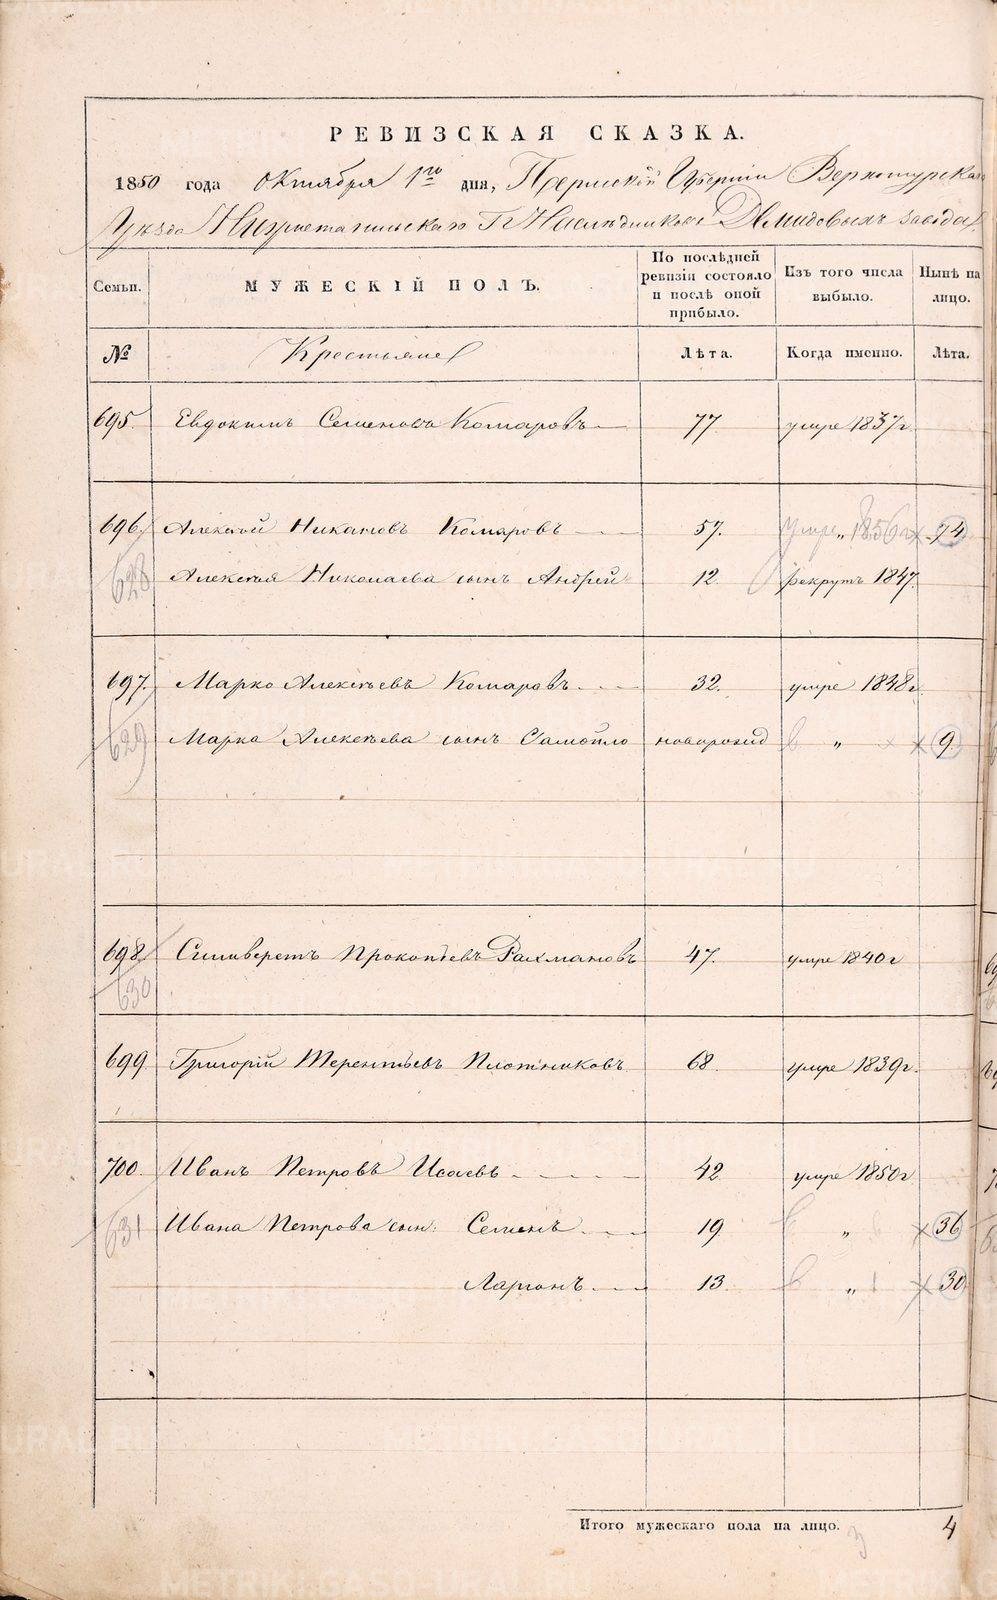 РЕВИЗСКАЯ СКАЗКА.
1850 года Октября 1го дня, Пермской Губерніи Верхотурскаго
Уѣзда Нижнетагильскаго Гг. Наслѣдниковъ Демидовыхъ завода
Семьи. МУЖЕСКІЙ ПОЛЪ. По послѣдней ревизіи состояло и послѣ оной прибыло. Изъ того числа выбыло. Нынѣ на лицо.
№ Крестьяне Лѣта. Когда именно. Лѣта.
695. Евдокимъ Семеновъ Комаровъ 77. умре 1837г.
696. Алексѣй Никоновъ Комаровъ 57. умре „ 1856г. 74
628 Алексѣя Николаева сынъ Андрей 12. рекрутъ 1847.
697. Марко Алексѣевъ Комаровъ 32. умре 1848г
629 Марка Алексѣева сынъ Самойло новорожд „ 9
698. Селиверстъ Прокопьевъ Рахмановъ 47. умре 1840г
630
699 Григорій Терентьевъ Плотниковъ 68. умре 1839г.
700. Иванъ Петровъ Исаевъ 42 умре 1850г
631 Ивана Петрова сын: Семенъ 19 „ 36
Ларіонъ 13. „ 30
Итого мужескаго пола на лицо. 3 4
METRIKI.GASO-URAL.RU